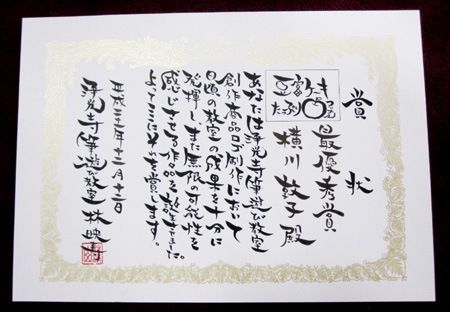 賞状
最優秀賞
横川 敦子 殿
あなたは浄光寺筆遊び教室
創作商品ロゴ創作において
日頃の教室の成果を十分に
発揮しまた無限の可能性を
感じさせる作品を誕生させました。
よってここにそれを賞します。
平成二十三年十二月十二日
浄光寺筆遊び教室 林映寿